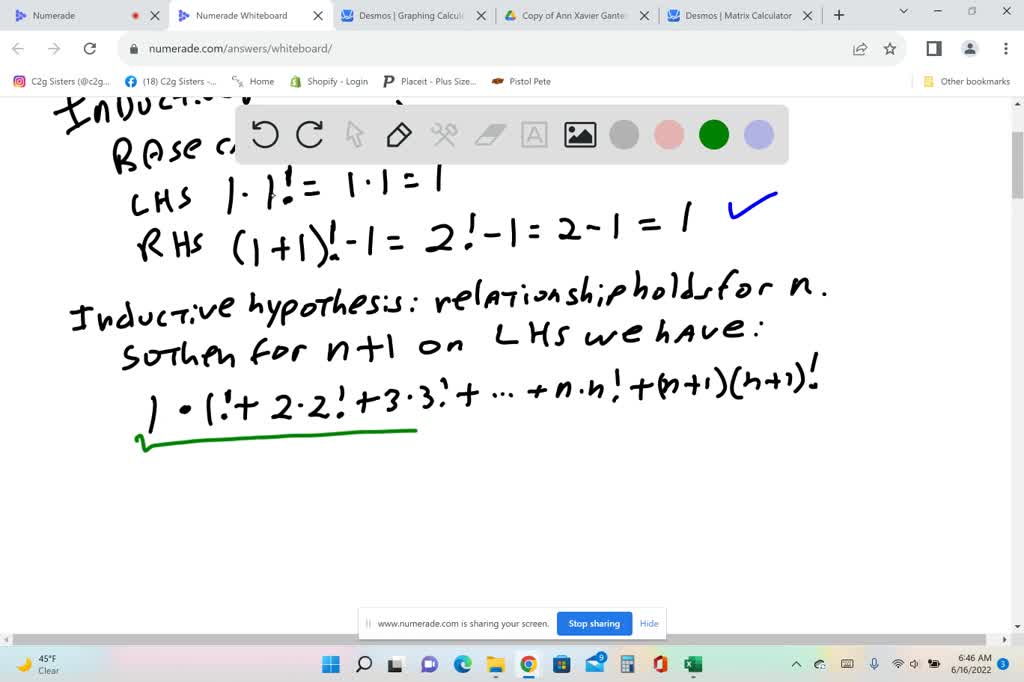 Numerade
Numerade Whiteboard
Desmos | Graphing Calcul
Copy of Ann Xavier Gante
Desmos | Matrix Calculator
numerade.com/answers/whiteboard/
C2g Sisters (@c2g...
(18) C2g Sisters -...
Home
Shopify - Login
Placeit - Plus Size...
Pistol Pete
Other bookmarks
A
BAse
LHS 1·1! = 1·1 = 1
RHS (1+1)!-1 = 2!-1 = 2-1 = 1
Inductive hypothesis: relationship holds for n.
So then for n+1 on LHS we have:
1·1!+2·2!+3·3!+...+n·n!+(n+1)(n+1)!
www.numerade.com is sharing your screen.
Stop sharing
Hide
45°F
Clear
9
6:46 AM
6/16/2022
3